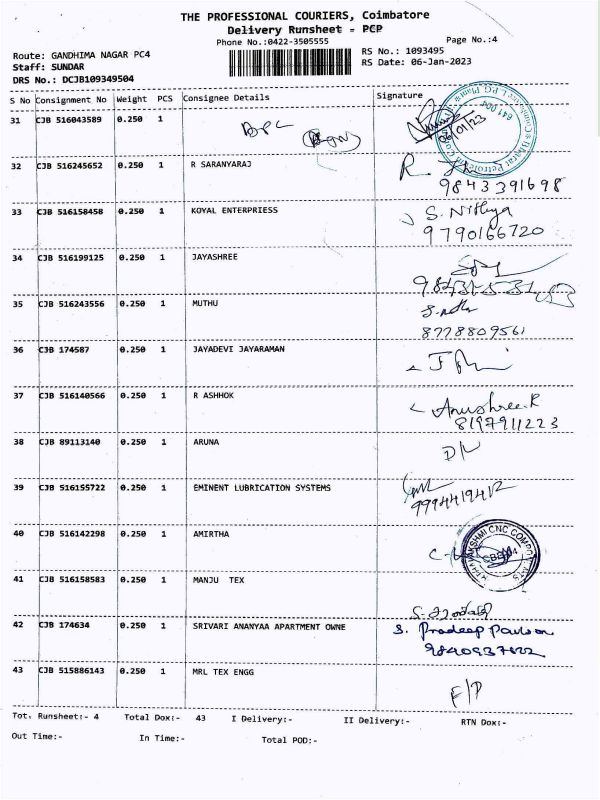 THE PROFESSIONAL COURIERS, Coimbatore
Delivery Runsheet = PCP
Phone No.:0422-3505555
Page No.:4
Route: GANDHIMA NAGAR PC4
RS No.: 1093495
Staff: SUNDAR
RS Date: 06-Jan-2023
DRS No.: DCJB109349504
S No Consignment No Weight PCS Consignee Details Signature
31 CJB 516043589 0.250 1 BPC
06/01/23
641 004
32 CJB 516245652 0.250 1 R SARANYARAJ R.
9843391698
33 CJB 516158458 0.250 1 KOYAL ENTERPRIESS S. Nithya
9790166720
34 CJB 516199125 0.250 1 JAYASHREE
35 CJB 516243556 0.250 1 MUTHU
8778809561
36 CJB 174587 0.250 1 JAYADEVI JAYARAMAN
37 CJB 516140566 0.250 1 R ASHHOK Anushree.R
8197911223
38 CJB 89113140 0.250 1 ARUNA D/L
39 CJB 516155722 0.250 1 EMINENT LUBRICATION SYSTEMS
9994419412
40 CJB 516142298 0.250 1 AMIRTHA
41 CJB 516158583 0.250 1 MANJU TEX
42 CJB 174634 0.250 1 SRIVARI ANANYAA APARTMENT OWNE S. Pradeep Paulson
43 CJB 515886143 0.250 1 MRL TEX ENGG F/P
Tot. Runsheet:- 4 Total Dox:- 43 I Delivery:- II Delivery:- RTN Dox:-
Out Time:- In Time:- Total POD:-